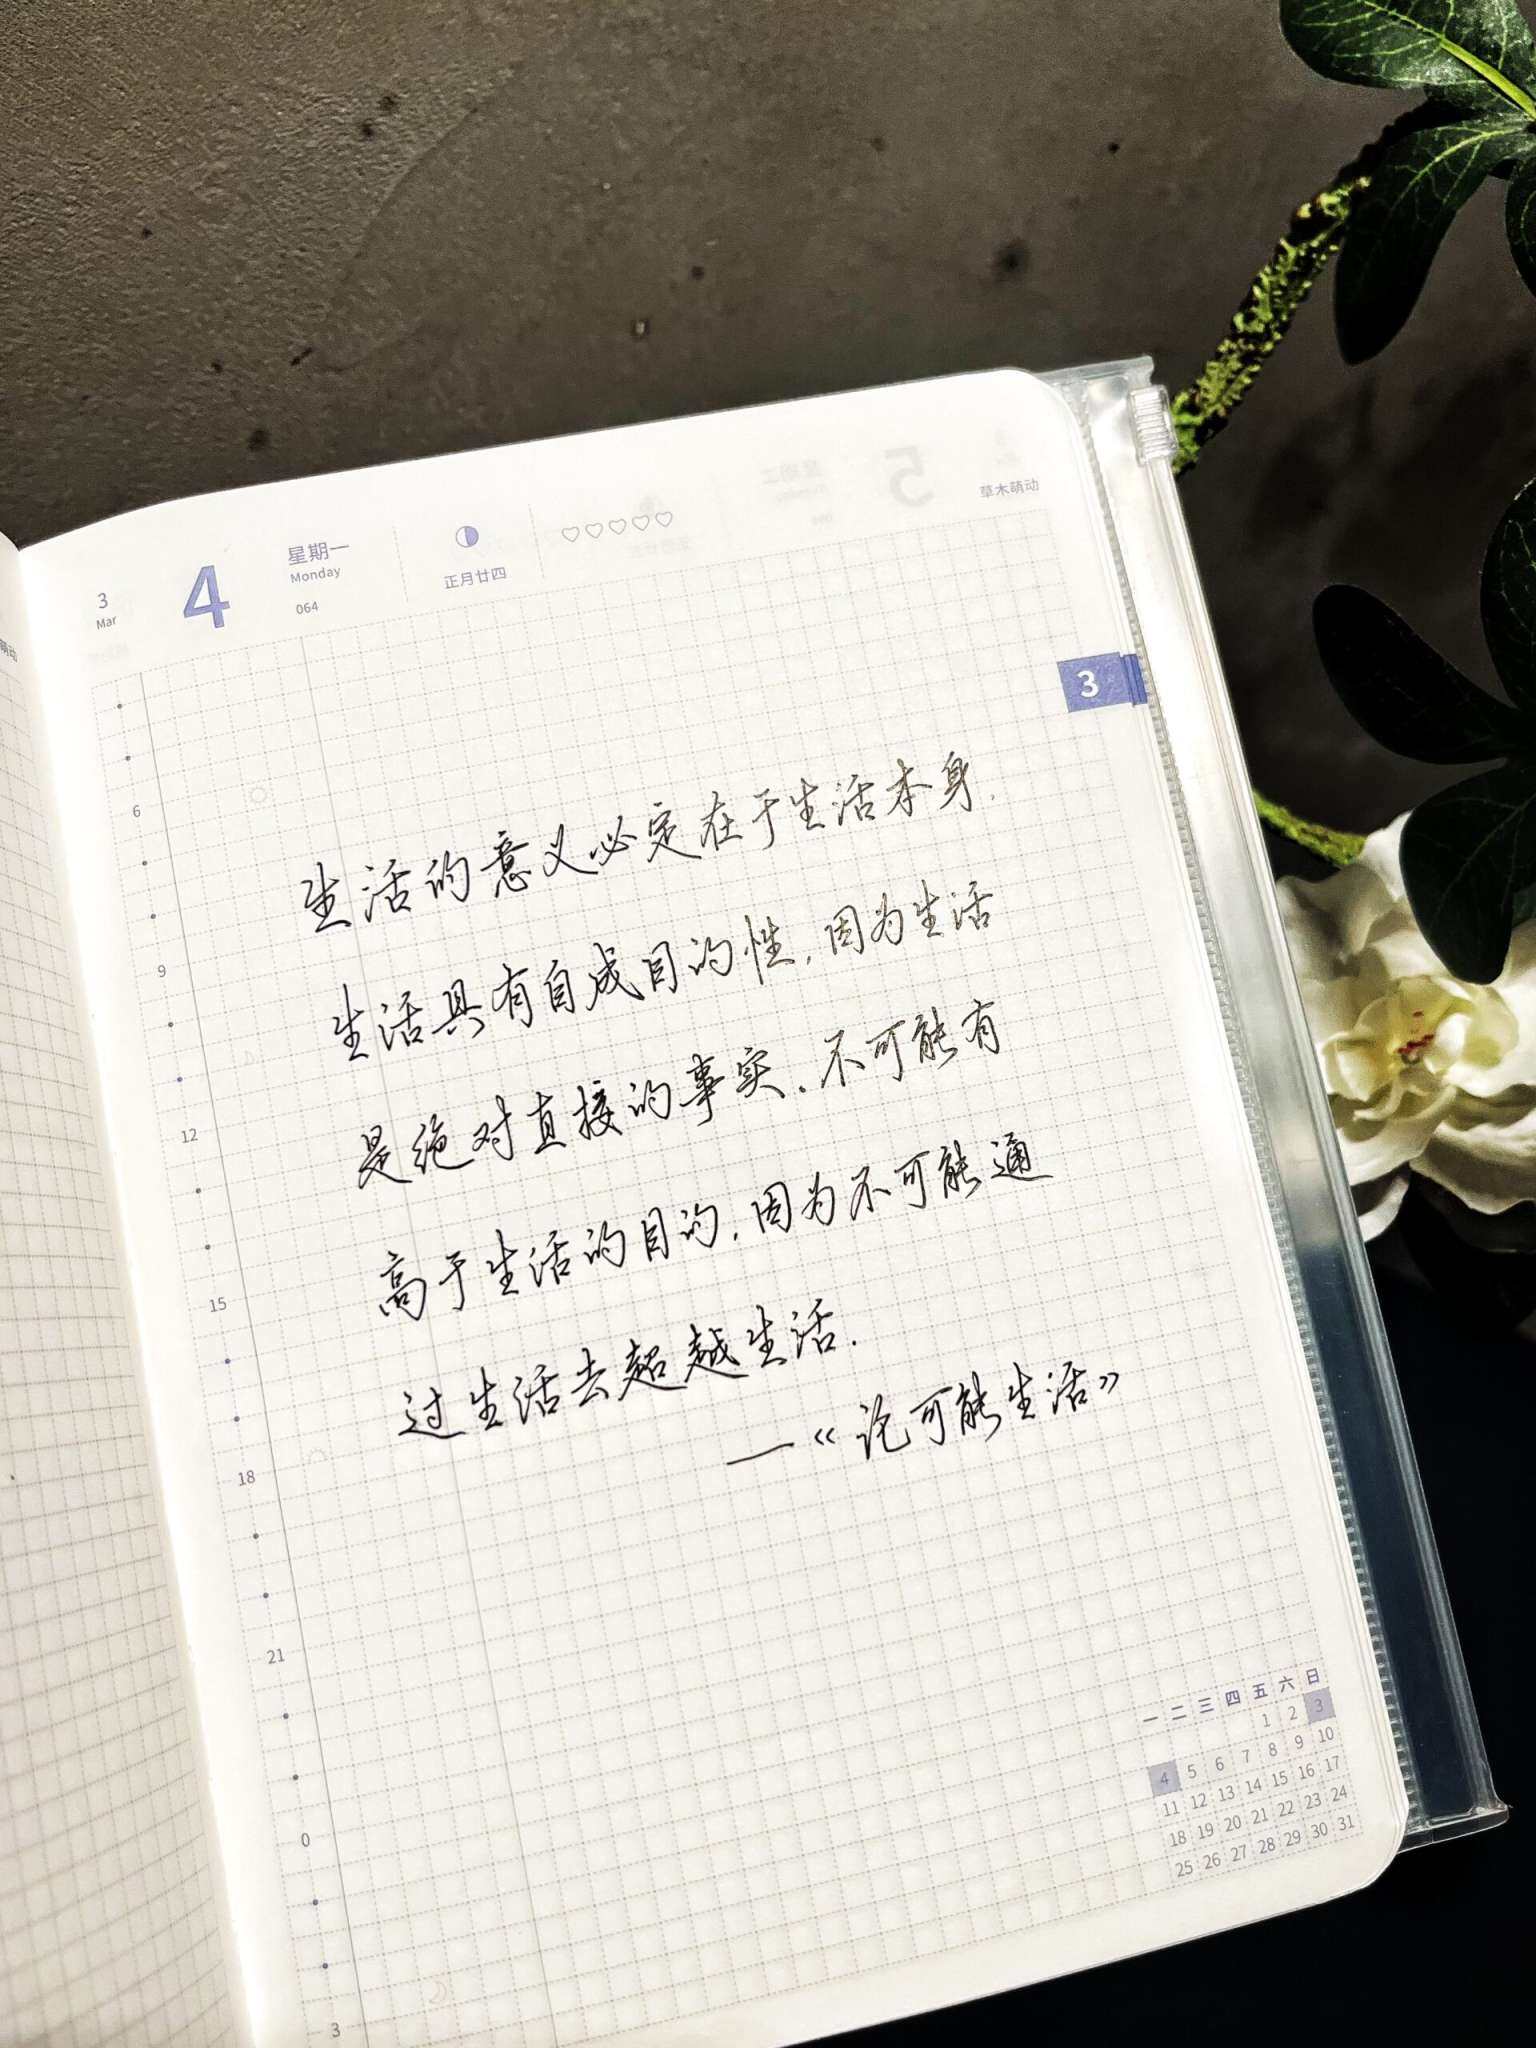 3
Mar
4
星期一
Monday
064
正月廿四
草木萌动
3
6
9
12
15
18
21
0
3
生活的意义必定在于生活本身.
生活具有自成目的性,因为生活
是绝对直接的事实.不可能有
高于生活的目的,因为不可能通
过生活去超越生活.
—《论可能生活》
一 二 三 四 五 六 日
1 2 3
4 5 6 7 8 9 10
11 12 13 14 15 16 17
18 19 20 21 22 23 24
25 26 27 28 29 30 31